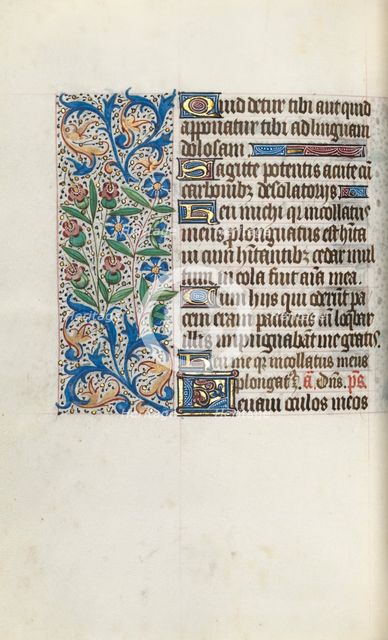 Quid detur tibi aut quid
apponatur tibi ad linguam
dolosam
Sagitte potentis acute cū
carbonibꝫ desolatorijs
Heu michi qꝛ incollatus
meus plongatus est hita
ui cum hitantibꝫ cedar mul
tum incola fuit aīa mea.
Cum hijs qui oderūt pa
cem eram pacificus cū loqbar
illis impugnabāt me gratis.
Heu me qꝛ incollatus meus
plongatꝰ ē a᷈. Dn̄s. p̄s.
Leuaui oculos meos